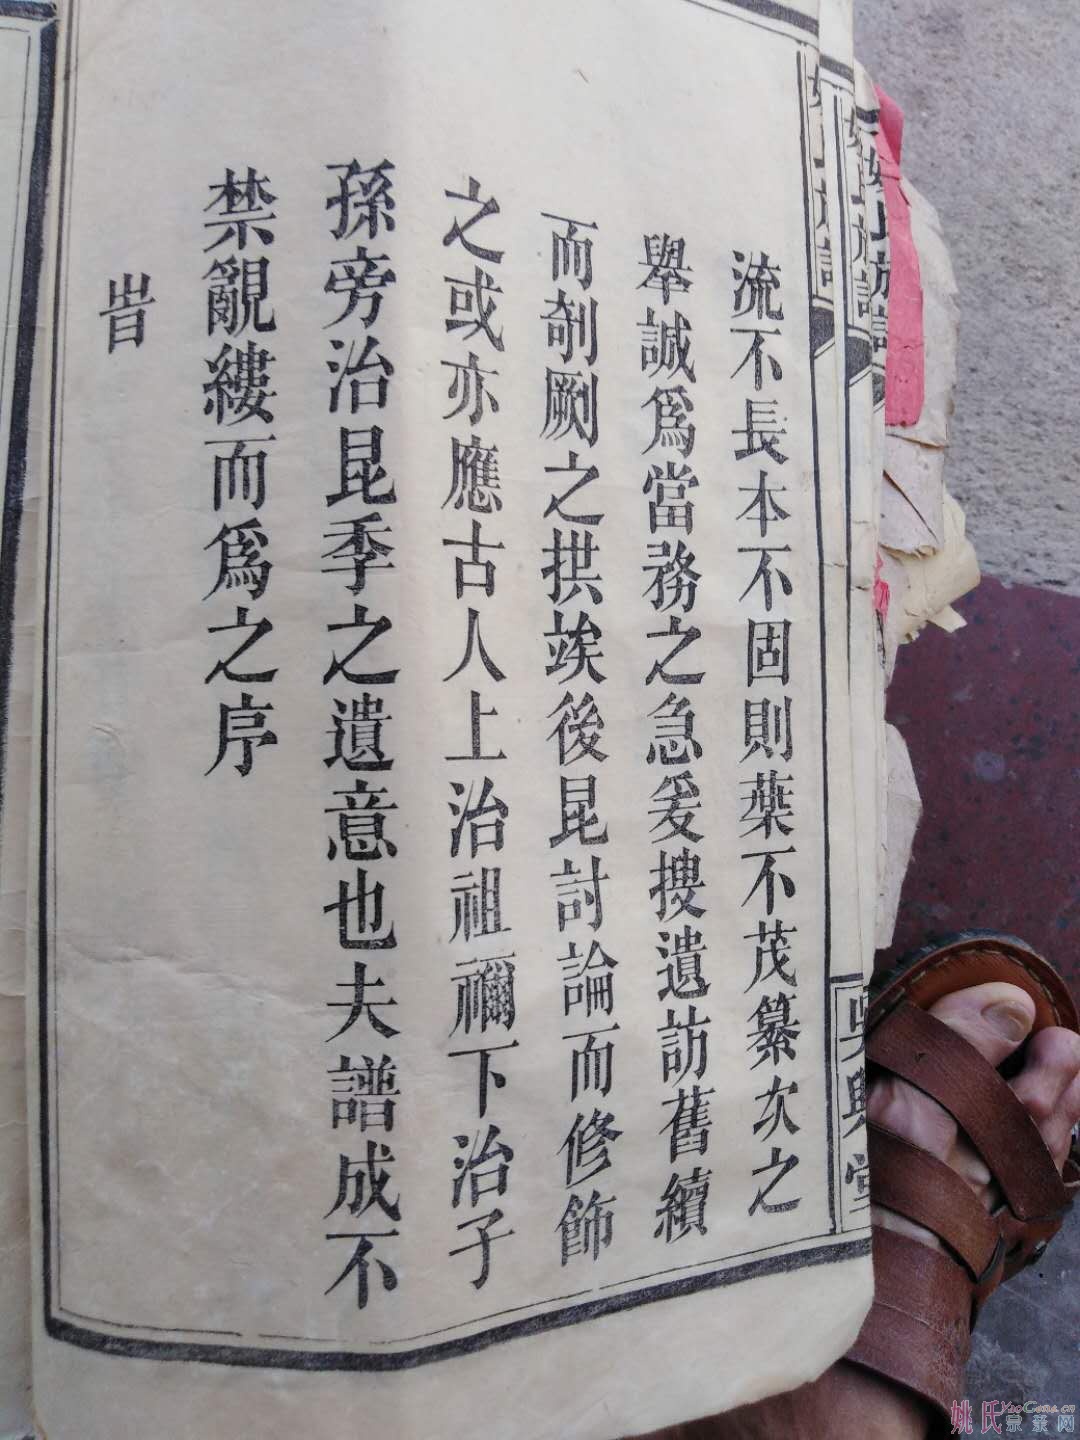 流不長本不固則葉不茂纂次之
舉誠爲當務之急爰搜遺訪舊續
而剞劂之拱竢後昆討論而修飾
之或亦應古人上治祖禰下治子
孫旁治昆季之遺意也夫譜成不
禁覼縷而爲之序
旹
吳興堂
姚氏宗亲网
YaoGens.cn